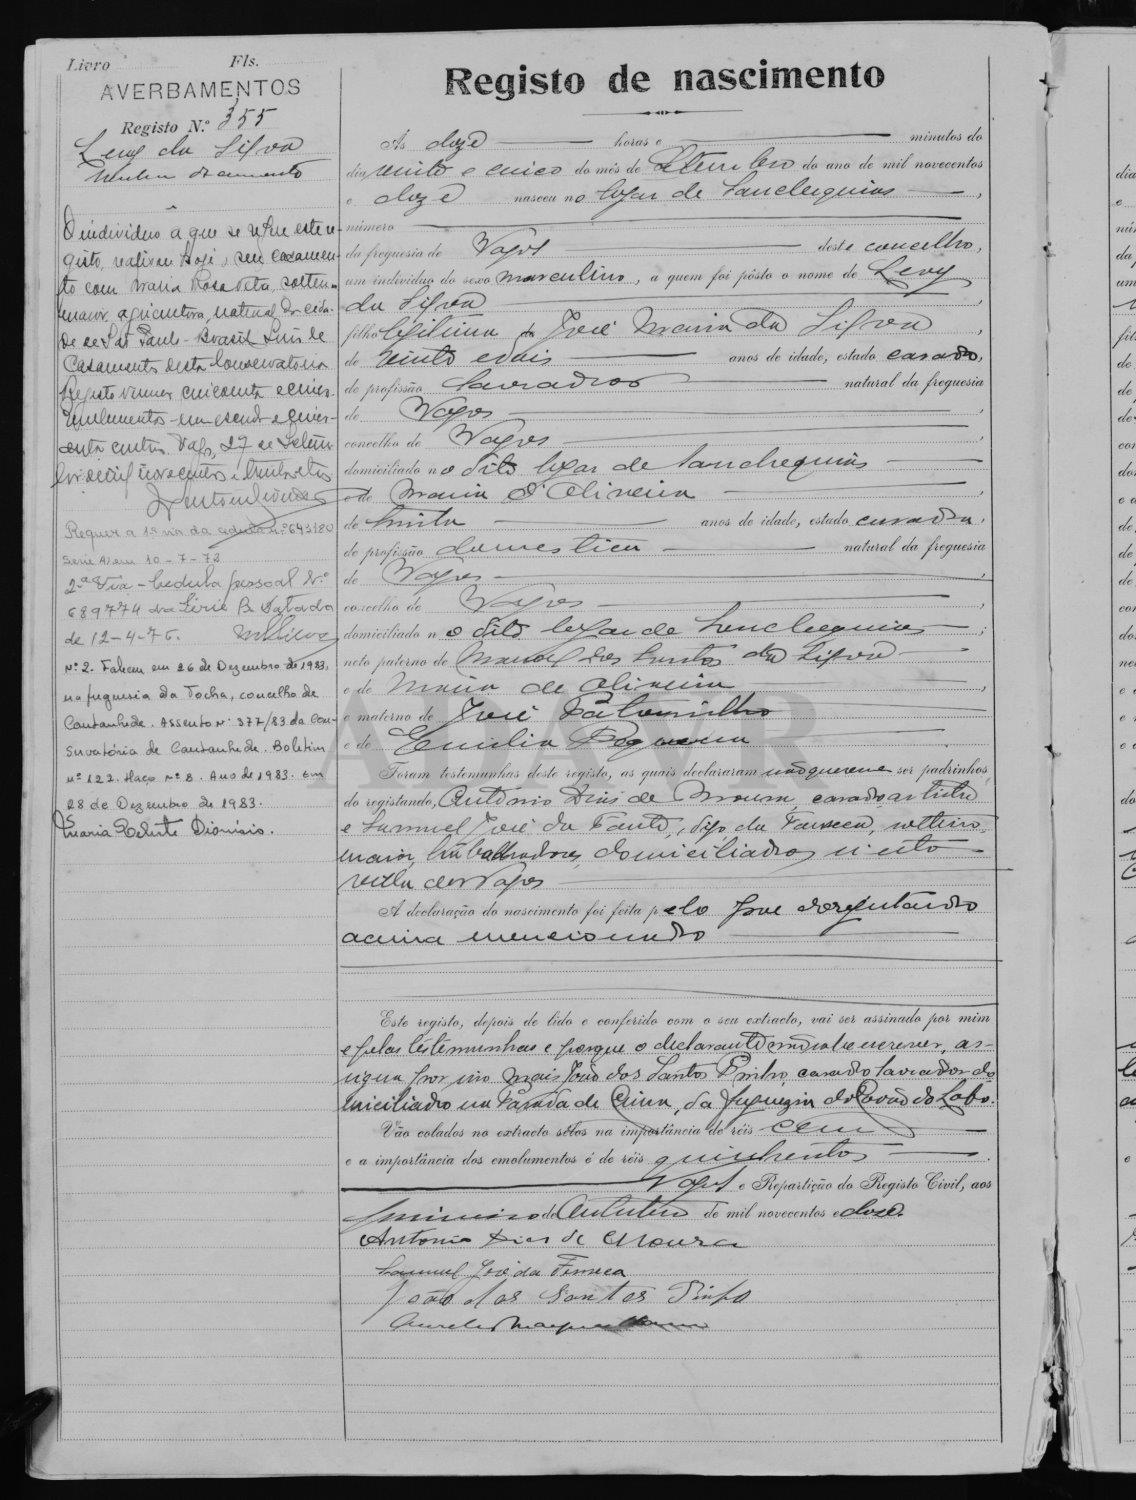 Livro Fls.
AVERBAMENTOS
Registo N.º 355
Levy da Silva
Nenhum documento
O individuo a que se refere este re-
gisto, realizou hoje o seu casamen-
to com Maria Rosa Neta, soltei-
maior, agricultora, natural da cida-
de de São Paulo - Brasil. Livro de
Casamentos desta Conservatoria
Registo numero cincoenta e cinco.
Emolumentos um escudo e cinco-
enta centavos. Vagos, 27 de Setem-
bro de mil novecentos e trinta e
Requer a 1ª via da cedula nº 643180
Serie A) em 10-7-73
2.ª Via - Cedula pessoal N.º
689774 da Série B datada
de 12-4-76.
Nº 2. Faleceu em 26 de Dezembro de 1983,
na freguesia da Tocha, concelho de
Cantanhede. Assento nº 377/83 da Con-
servatória de Cantanhede. Boletim
nº 122. Maço nº 8. Ano de 1983. Em
28 de Dezembro de 1983.
Maria Dionisio.
Registo de nascimento
Às doze horas e minutos do
dia vinte e cinco do mês de Setembro do ano de mil novecentos
e doze nasceu no logar de Sanchequias,
número
da freguesia de Vagos deste concelho,
um indivíduo do sexo masculino, a quem foi pôsto o nome de Levy
da Silva,
filho legitimo de José Maria da Silva,
de vinte e dois anos de idade, estado casado,
de profissão lavrador natural da freguesia
de Vagos,
concelho de Vagos,
domiciliado no dito logar de Sanchequias
e de Maria d'Oliveira,
de trinta anos de idade, estado casada,
de profissão domestica natural da freguesia
de Vagos,
concelho de Vagos,
domiciliado no dito logar de Sanchequias;
neto paterno de Manoel dos Santos da Silva
e de Maria de Oliveira,
e materno de José
e de Emilia.
Foram testemunhas deste registo, as quais declararam não querer ser padrinhos
do registando, António Dias de Moura, casado, artista
e Samuel José da, digo, da Fonseca, solteiro,
maior, trabalhador, domiciliados n'esta
villa de Vagos
A declaração do nascimento foi feita pelo pae do registando
acima mencionado
Este registo, depois de lido e conferido com o seu extracto, vai ser assinado por mim
e pelas testemunhas e porque o declarante não sabe escrever, as-
signa por elle mais João dos Santos Pinho, casado, lavrador do-
miciliado na Parada de Cima, da freguezia do Covão do Lobo.
Vão colados no extracto sêlos na importância de réis cem
e a importância dos emolumentos é de réis quinhentos.
Vagos e Repartição do Registo Civil, aos
primeiro de Outubro de mil novecentos e doze.
Antonio Dias de Moura
Samuel José da Fonseca
João dos Santos Pinho
Aurelio
ADAVR